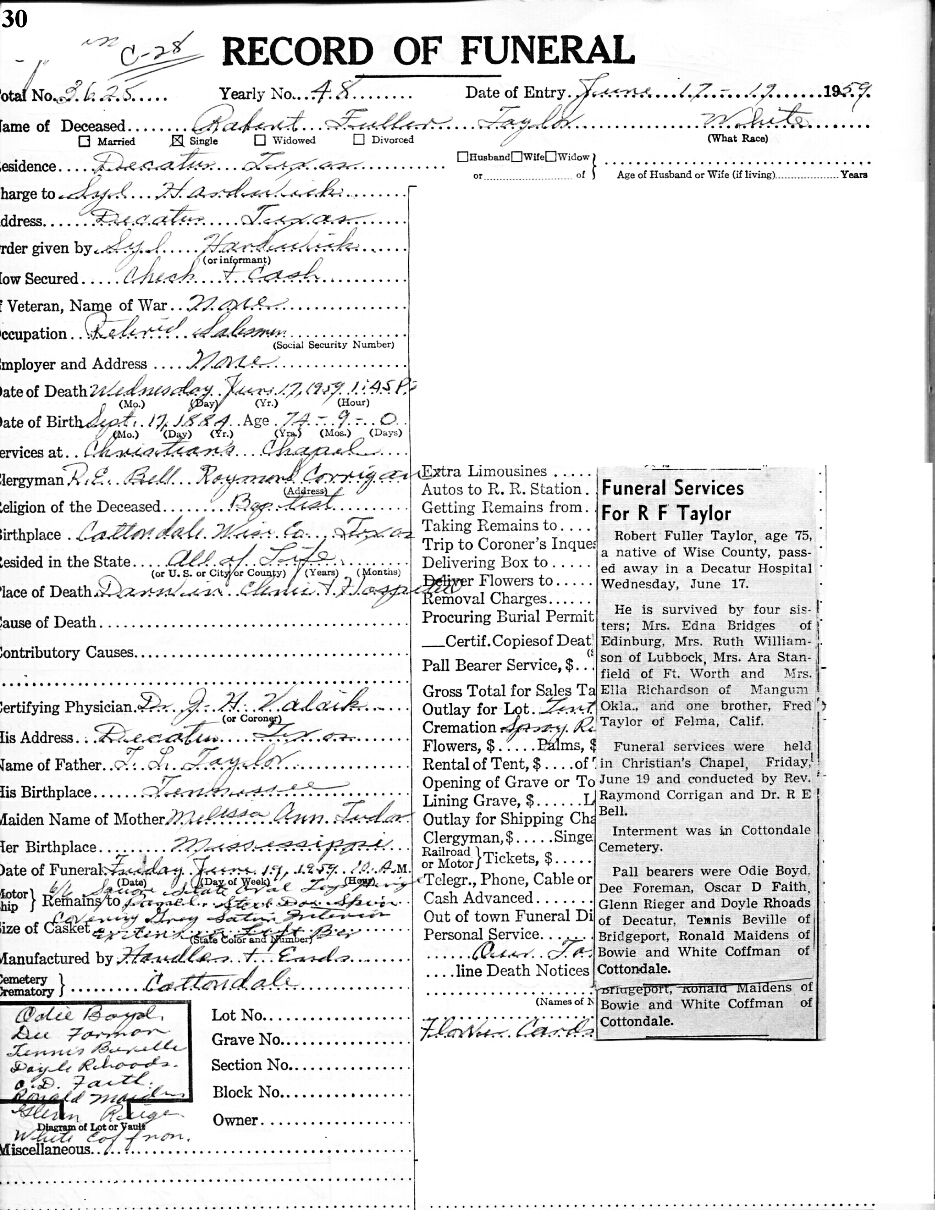 30
C-28
RECORD OF FUNERAL
otal No. 3625 Yearly No. 48 Date of Entry June 17-19 1959
Name of Deceased Robert Fuller Taylor White
Married Single Widowed Divorced (What Race)
esidence Decatur Texas Husband Wife Widow
or of Age of Husband or Wife (if living) Years
harge to Syl Hardwick
ddress Decatur Texas
rder given by Syl Hardwick
(or informant)
ow Secured Check + Cash
f Veteran, Name of War None
ccupation Retired Salesman
(Social Security Number)
mployer and Address None
Date of Death Wednesday June 17, 1959 1:45 P.
(Mo.) (Day) (Yr.) (Hour)
Date of Birth Sept. 17, 1884 Age 74-9-0
(Mo.) (Day) (Yr.) (Yrs.) (Mos.) (Days)
ervices at Christian's Chapel
lergyman R.E. Bell Raymond Corrigan
(Address)
eligion of the Deceased Baptist
irthplace Cottondale Wise Co., Texas
esided in the State All of Life
(or U. S. or City or County) (Years) (Months)
lace of Death Clinic + Hospital
ause of Death
ontributory Causes
ertifying Physician Dr. J. H.
(or Coroner)
is Address Decatur Texas
Name of Father T. L. Taylor
is Birthplace Tennessee
Maiden Name of Mother Melissa Ann Tudor
er Birthplace Mississippi
Date of Funeral Friday June 19, 1959 10 A.M.
(Date) (Day of Week) (Hour)
otor
hip Remains to
Covering Grey Satin Interior
ize of Casket
(State Color and Number)
Manufactured by Handles + Ends
emetery
rematory Cottondale
Odie Boyd.
Dee Forman
Tennis Beville
Doyle Rhoods.
O. D. Faith.
Ronald Maidens
Glenn Reiger
Diagram of Lot or Vault
White Coffman.
Lot No.
Grave No.
Section No.
Block No.
Owner
iscellaneous
Extra Limousines
Autos to R. R. Station
Getting Remains from
Taking Remains to
Trip to Coroner's Inques
Delivering Box to
Deliver Flowers to
Removal Charges
Procuring Burial Permit
Certif. Copies of Deat
Pall Bearer Service, $
Gross Total for Sales Ta
Outlay for Lot Tent
Cremation Spray
Flowers, $ Palms, $
Rental of Tent, $ of T
Opening of Grave or To
Lining Grave, $ L
Outlay for Shipping Cha
Clergyman, $ Singe
Railroad
or Motor Tickets, $
Telegr., Phone, Cable or
Cash Advanced
Out of town Funeral Di
Personal Service
line Death Notices
(Names of N
Flower Cards
Funeral Services
For R F Taylor
Robert Fuller Taylor, age 75,
a native of Wise County, pass-
ed away in a Decatur Hospital
Wednesday, June 17.
He is survived by four sis-
ters; Mrs. Edna Bridges of
Edinburg, Mrs. Ruth William-
son of Lubbock, Mrs. Ara Stan-
field of Ft. Worth and Mrs.
Ella Richardson of Mangum
Okla., and one brother, Fred
Taylor of Felma, Calif.
Funeral services were held
in Christian's Chapel, Friday,
June 19 and conducted by Rev.
Raymond Corrigan and Dr. R E
Bell.
Interment was in Cottondale
Cemetery.
Pall bearers were Odie Boyd,
Dee Foreman, Oscar D Faith,
Glenn Rieger and Doyle Rhoads
of Decatur, Tennis Beville of
Bridgeport, Ronald Maidens of
Bowie and White Coffman of
Cottondale.
Bridgeport, Ronald Maidens of
Bowie and White Coffman of
Cottondale.